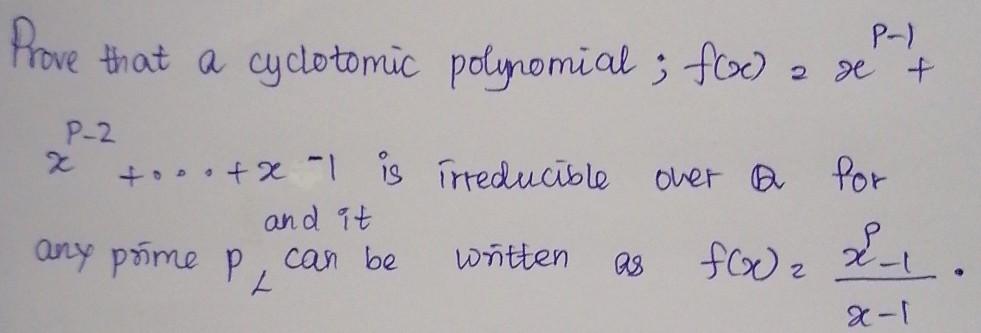 Prove that a cyclotomic polynomial ; f(x) = x^{p-1} +
x^{p-2} + .... + x -1 is irreducible over Q for
any prime p, and it can be written as f(x) = \frac{x^p - 1}{x - 1} .